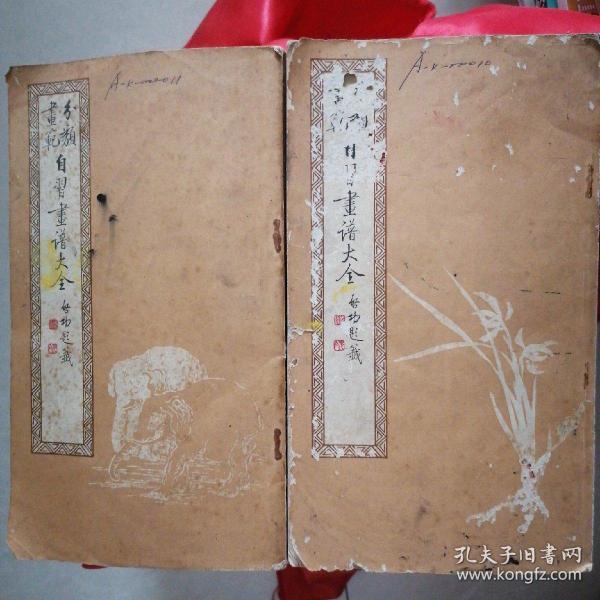 A-k-00011
分類
畫範
自習畫譜大全
啟功題籤
A-k-00010
自習畫譜大全
啟功題籤
孔夫子旧书网
www.kongfz.com